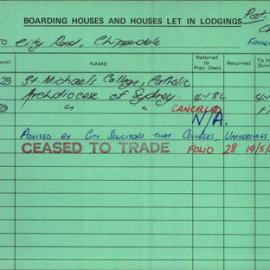 BOARDING HOUSES AND HOUSES LET IN LODGINGS
Post
TO City Road, Chippendale
FATHER
NAME
Referred to Plan. Dept.
Returned
23 St Michael's College, Catholic
Archdiocese of Sydney
4-1-82
" " CANCELLED
N/A.
ADVISED BY CITY SOLICITORS THAT COLLEGES, UNIVERSITIES
CEASED TO TRADE FOLIO 28 19/5/